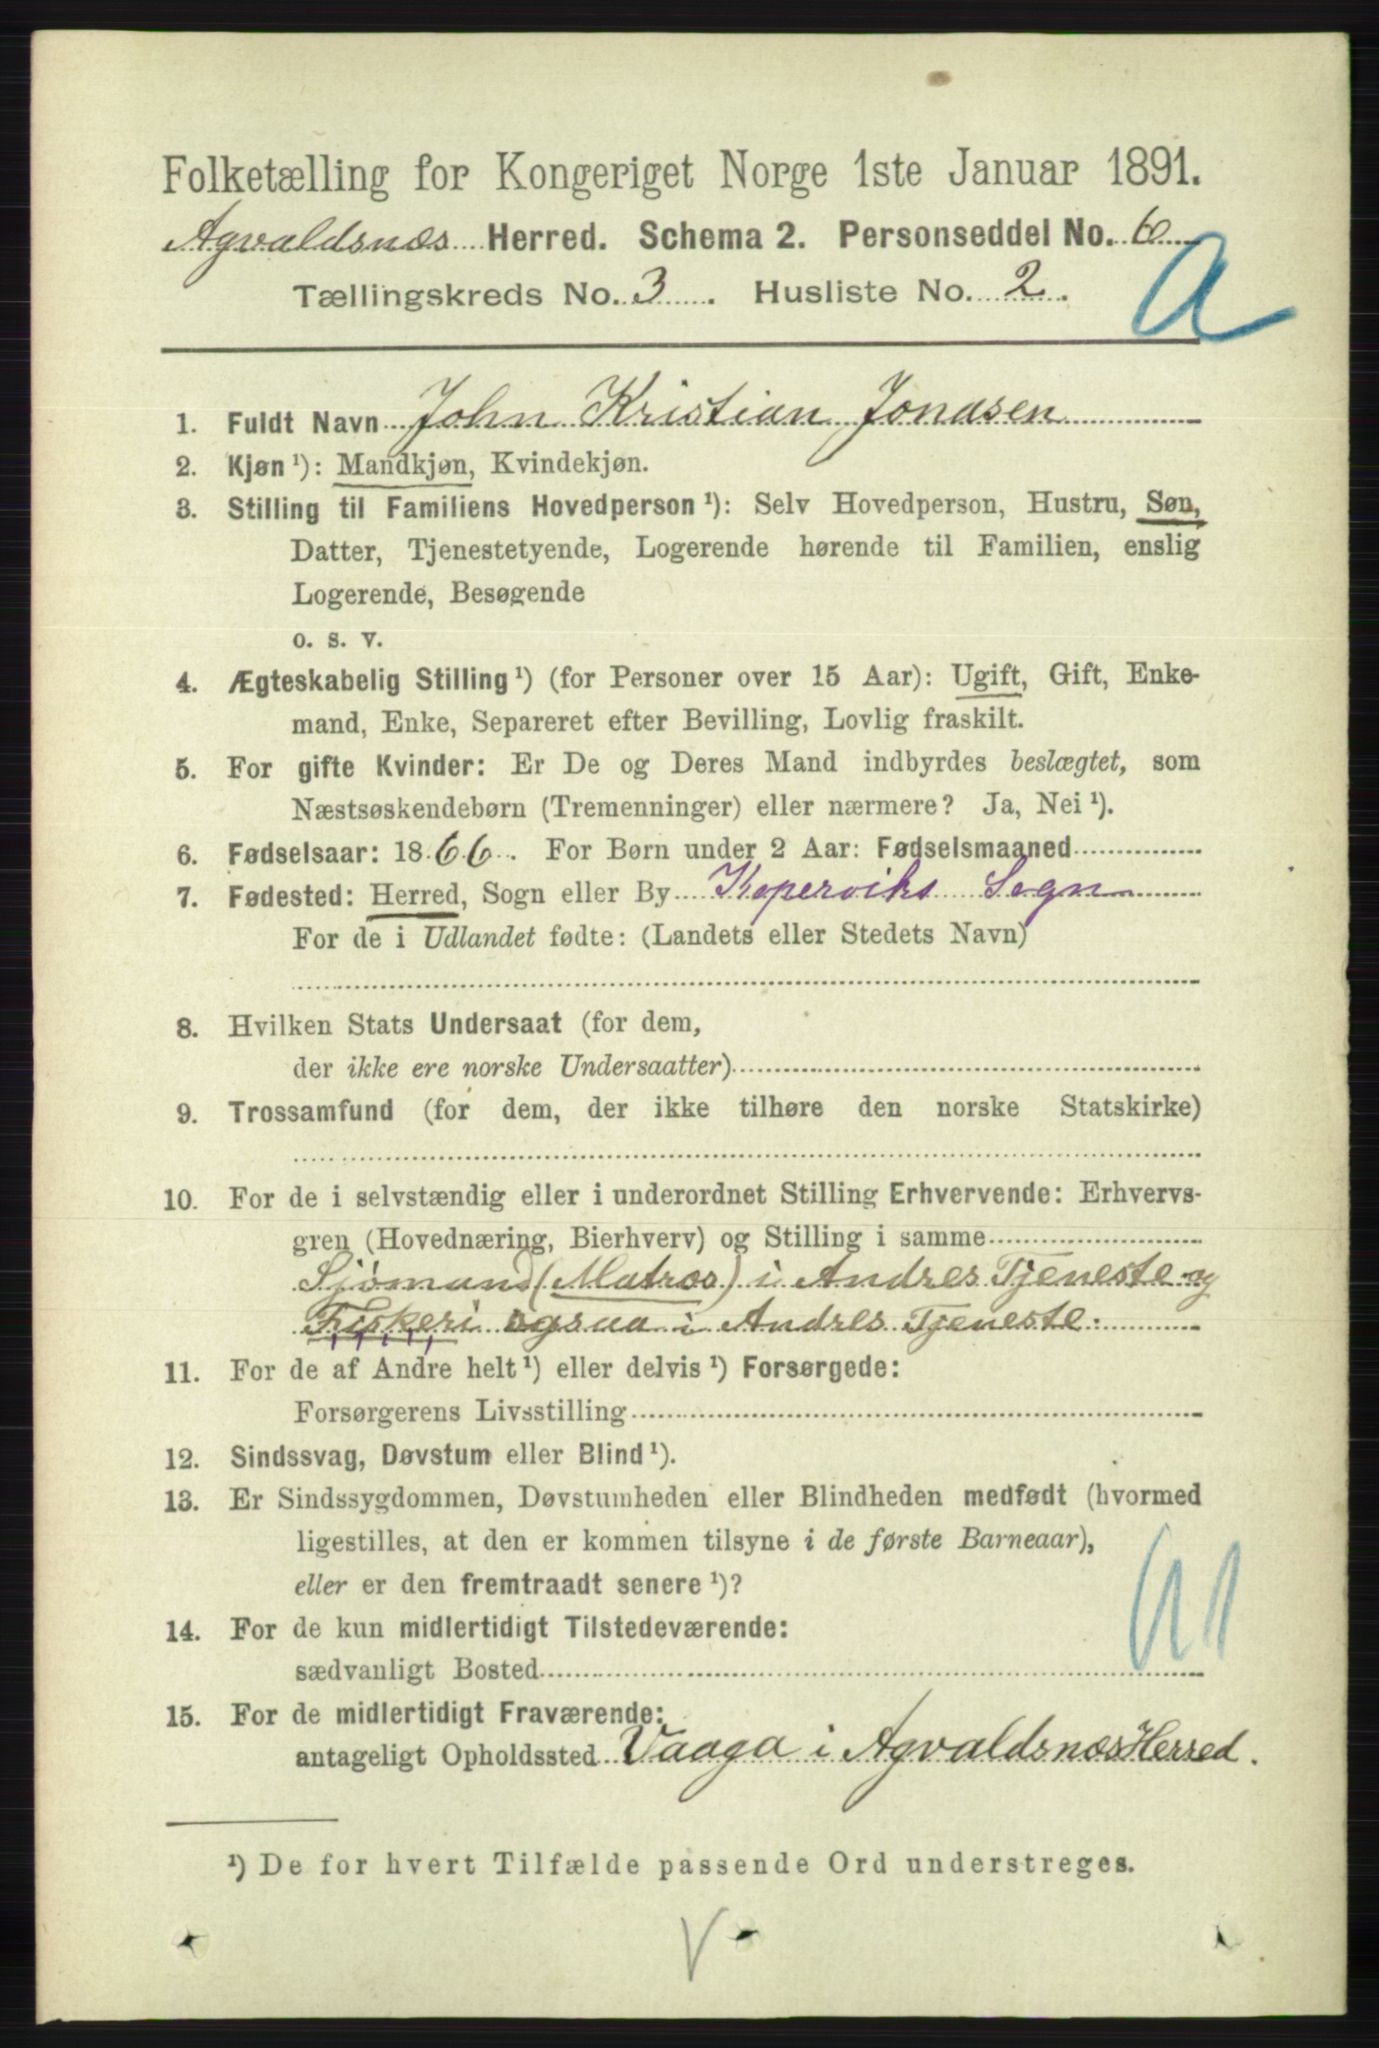 Folketælling for Kongeriget Norge 1ste Januar 1891.
Agvaldsnæs Herred. Schema 2. Personseddel No. 6
Tællingskreds No. 3. Husliste No. 2.
A
1. Fuldt Navn John Kristian Jonasen
2. Kjøn ¹): Mandkjøn, Kvindekjøn.
3. Stilling til Familiens Hovedperson ¹): Selv Hovedperson, Hustru, Søn,
Datter, Tjenestetyende, Logerende hørende til Familien, enslig
Logerende, Besøgende
o. s. v.
4. Ægteskabelig Stilling ¹) (for Personer over 15 Aar): Ugift, Gift, Enke-
mand, Enke, Separeret efter Bevilling, Lovlig fraskilt.
5. For gifte Kvinder: Er De og Deres Mand indbyrdes beslægtet, som
Næstsøskendebørn (Tremenninger) eller nærmere? Ja, Nei ¹).
6. Fødselsaar: 1866. For Børn under 2 Aar: Fødselsmaaned
7. Fødested: Herred, Sogn eller By Koperviks Sogn
For de i Udlandet fødte: (Landets eller Stedets Navn)
8. Hvilken Stats Undersaat (for dem,
der ikke ere norske Undersaatter)
9. Trossamfund (for dem, der ikke tilhøre den norske Statskirke)
10. For de i selvstændig eller i underordnet Stilling Erhvervende: Erhvervs-
gren (Hovednæring, Bierhverv) og Stilling i samme
Sjømand (Matros) i Andres Tjeneste og
Fiskeri ogsaa i Andres Tjeneste.
11. For de af Andre helt ¹) eller delvis ¹) Forsørgede:
Forsørgerens Livsstilling
12. Sindssvag, Døvstum eller Blind ¹).
13. Er Sindssygdommen, Døvstumheden eller Blindheden medfødt (hvormed
ligestilles, at den er kommen tilsyne i de første Barneaar),
eller er den fremtraadt senere ¹)?
14. For de kun midlertidigt Tilstedeværende:
sædvanligt Bosted
15. For de midlertidigt Fraværende:
antageligt Opholdssted Vaaga i Agvaldsnæs Herred.
¹) De for hvert Tilfælde passende Ord understreges.